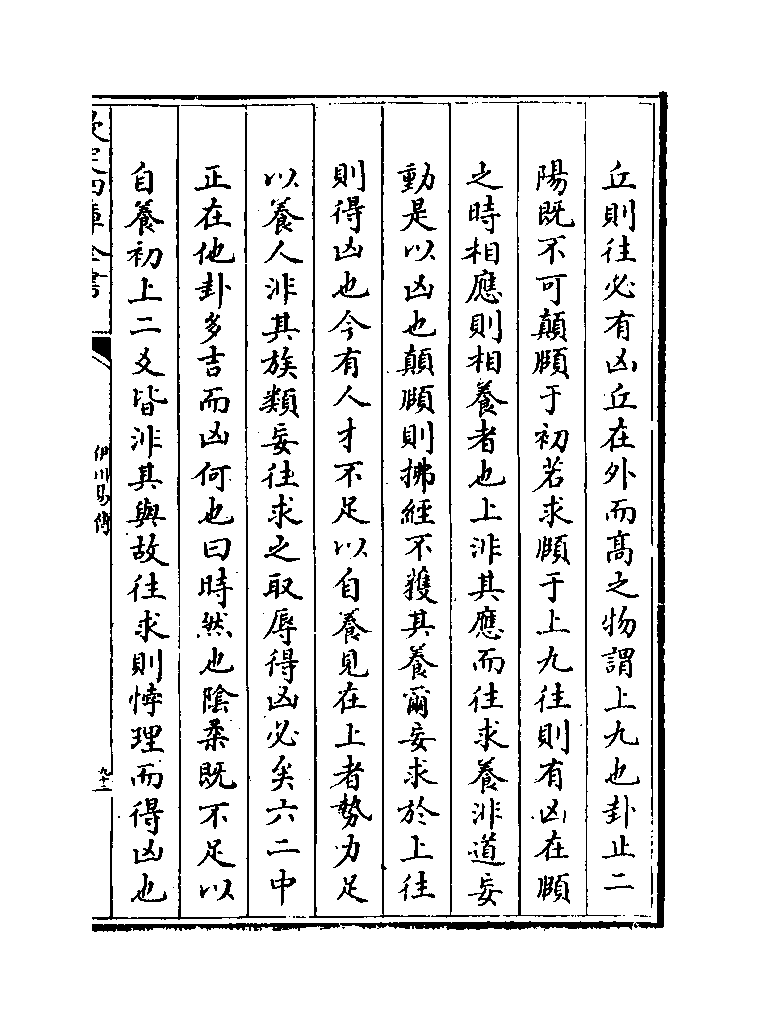 丘則徃必有凶丘在外而髙之物謂上九也卦止二
陽既不可顛頤于初若求頤于上九徃則有凶在頤
之時相應則相養者也上非其應而徃求養非道妄
動是以凶也顛頤則拂經不獲其養爾妄求於上徃
則得凶也今有人才不足以自養見在上者勢力足
以養人非其族類妄徃求之取辱得凶必矣六二中
正在他卦多吉而凶何也曰時然也陰柔既不足以
自養初上二爻皆非其與故徃求則悖理而得凶也
欽定四庫全書
伊川易傳
九十二